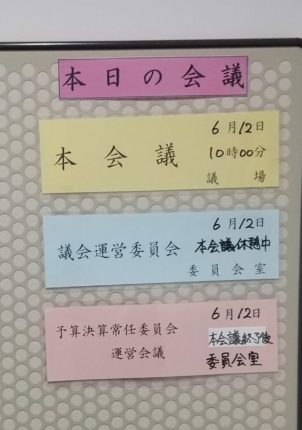 本日の会議
6月12日
本会議 10時00分
議場
6月12日
議会運営委員会 本会議休憩中
委員会室
6月12日
予算決算常任委員会 本会議終了後
運営会議 委員会室